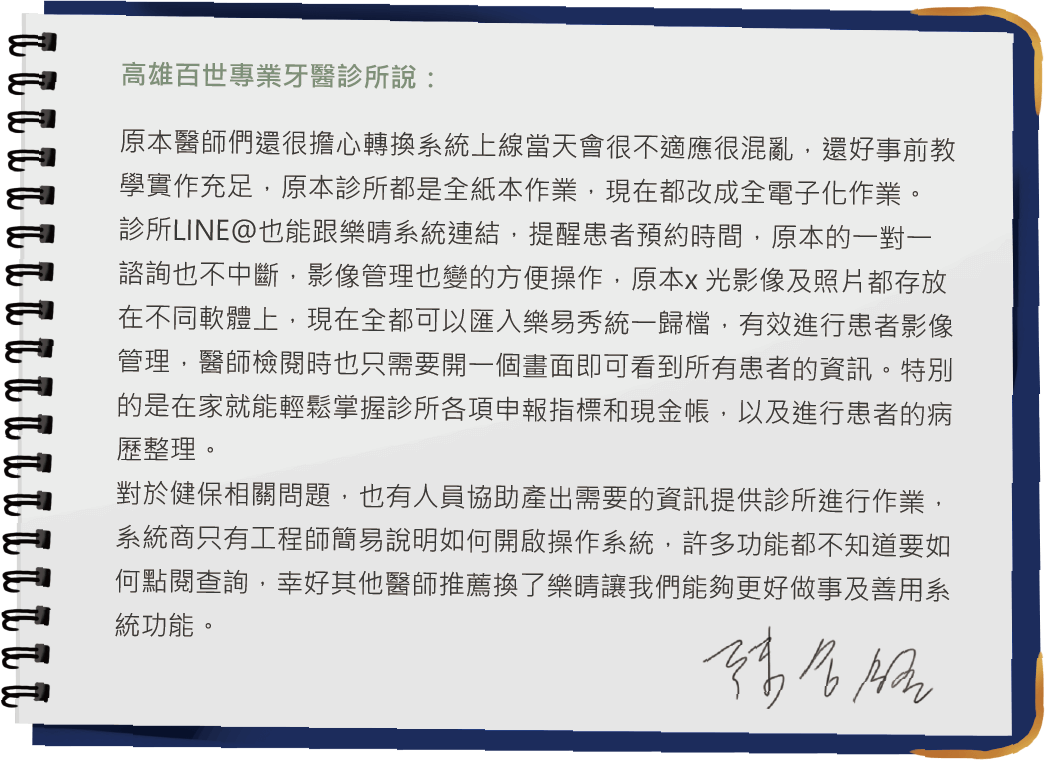 高雄百世專業牙醫診所說：
原本醫師們還很擔心轉換系統上線當天會很不適應很混亂，還好事前教
學實作充足，原本診所都是全紙本作業，現在都改成全電子化作業。
診所LINE@也能跟樂晴系統連結，提醒患者預約時間，原本的一對一
諮詢也不中斷，影像管理也變的方便操作，原本x 光影像及照片都存放
在不同軟體上，現在全都可以匯入樂易秀統一歸檔，有效進行患者影像
管理，醫師檢閱時也只需要開一個畫面即可看到所有患者的資訊。特別
的是在家就能輕鬆掌握診所各項申報指標和現金帳，以及進行患者的病
歷整理。
對於健保相關問題，也有人員協助產出需要的資訊提供診所進行作業，
系統商只有工程師簡易說明如何開啟操作系統，許多功能都不知道要如
何點閱查詢，幸好其他醫師推薦換了樂晴讓我們能夠更好做事及善用系
統功能。